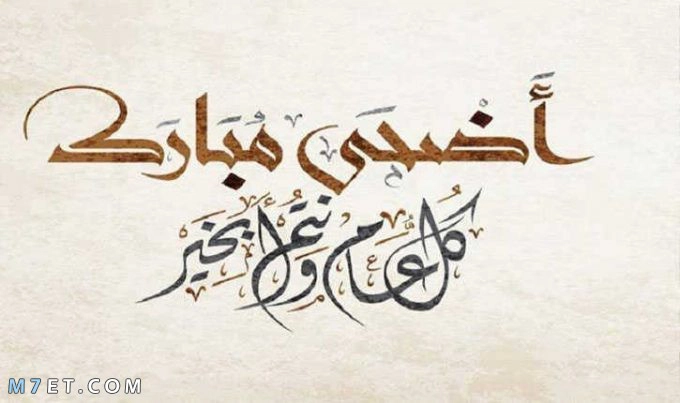 أَضْحَى مُبَارَك
كُل عَام وَأَنتُم بِخَير
M7ET.COM